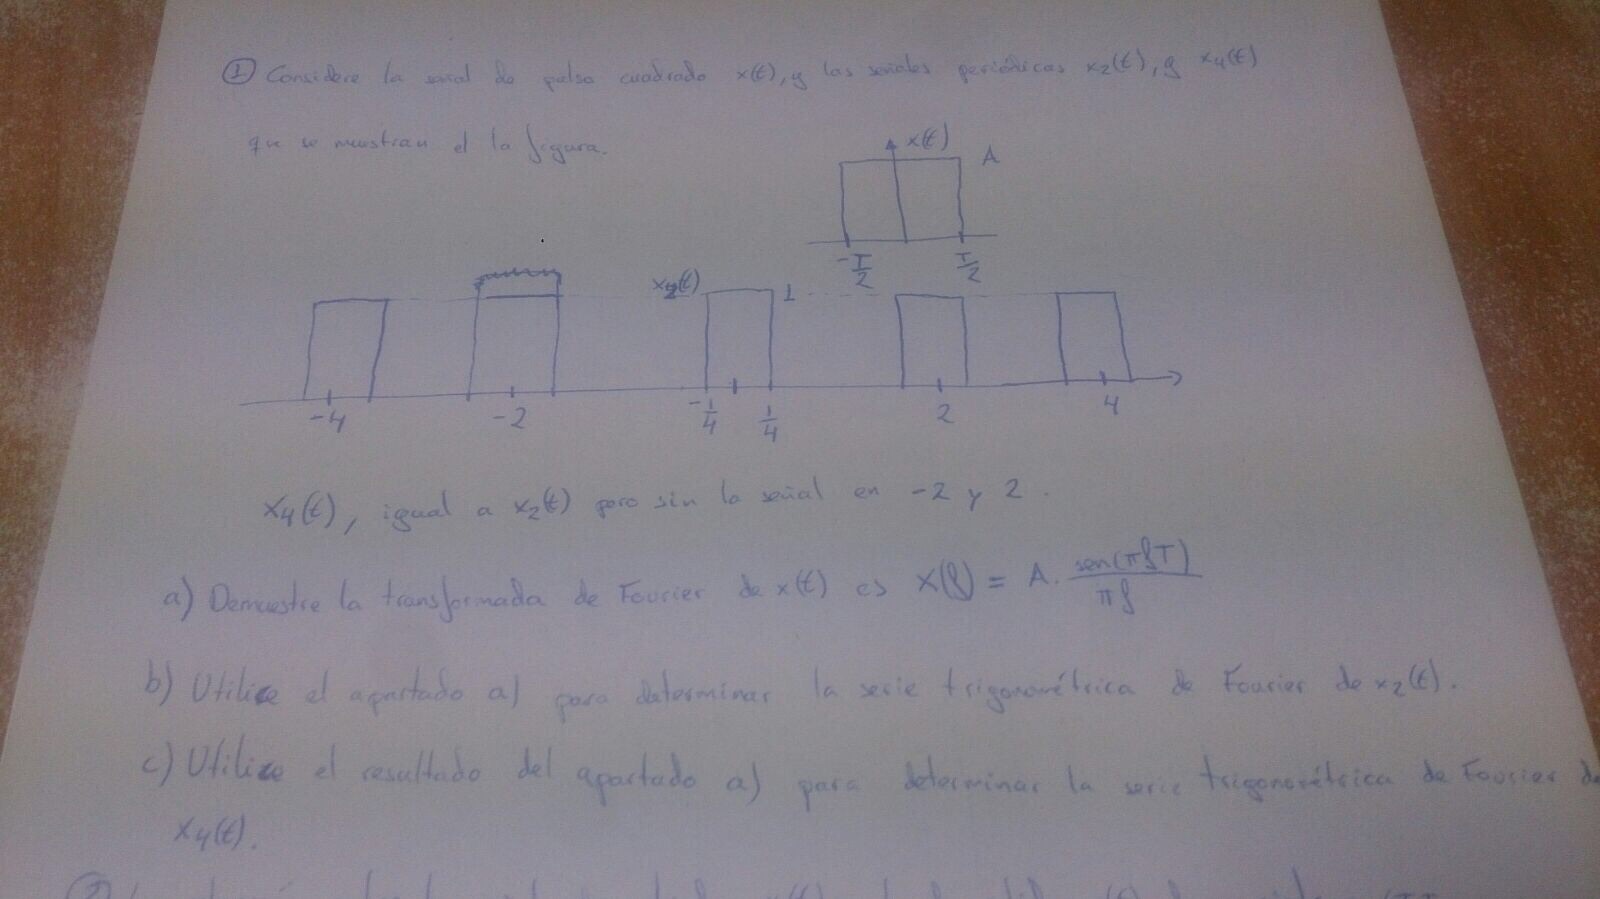 ① Considere la señal de pulso cuadrado x(t), y las señales periódicas x₂(t), y x₄(t)
que se muestran el la figura.
x(t)
A
-T/2 T/2
x₂(t) 1
-4 -2 -1/4 1/4 2 4
x₄(t), igual a x₂(t) pero sin la señal en -2 y 2.
a) Demuestre la transformada de Fourier de x(t) es X(f) = A · sen(πfT) / πf
b) Utilice el apartado a) para determinar la serie trigonométrica de Fourier de x₂(t).
c) Utilice el resultado del apartado a) para determinar la serie trigonométrica de Fourier de
x₄(t).